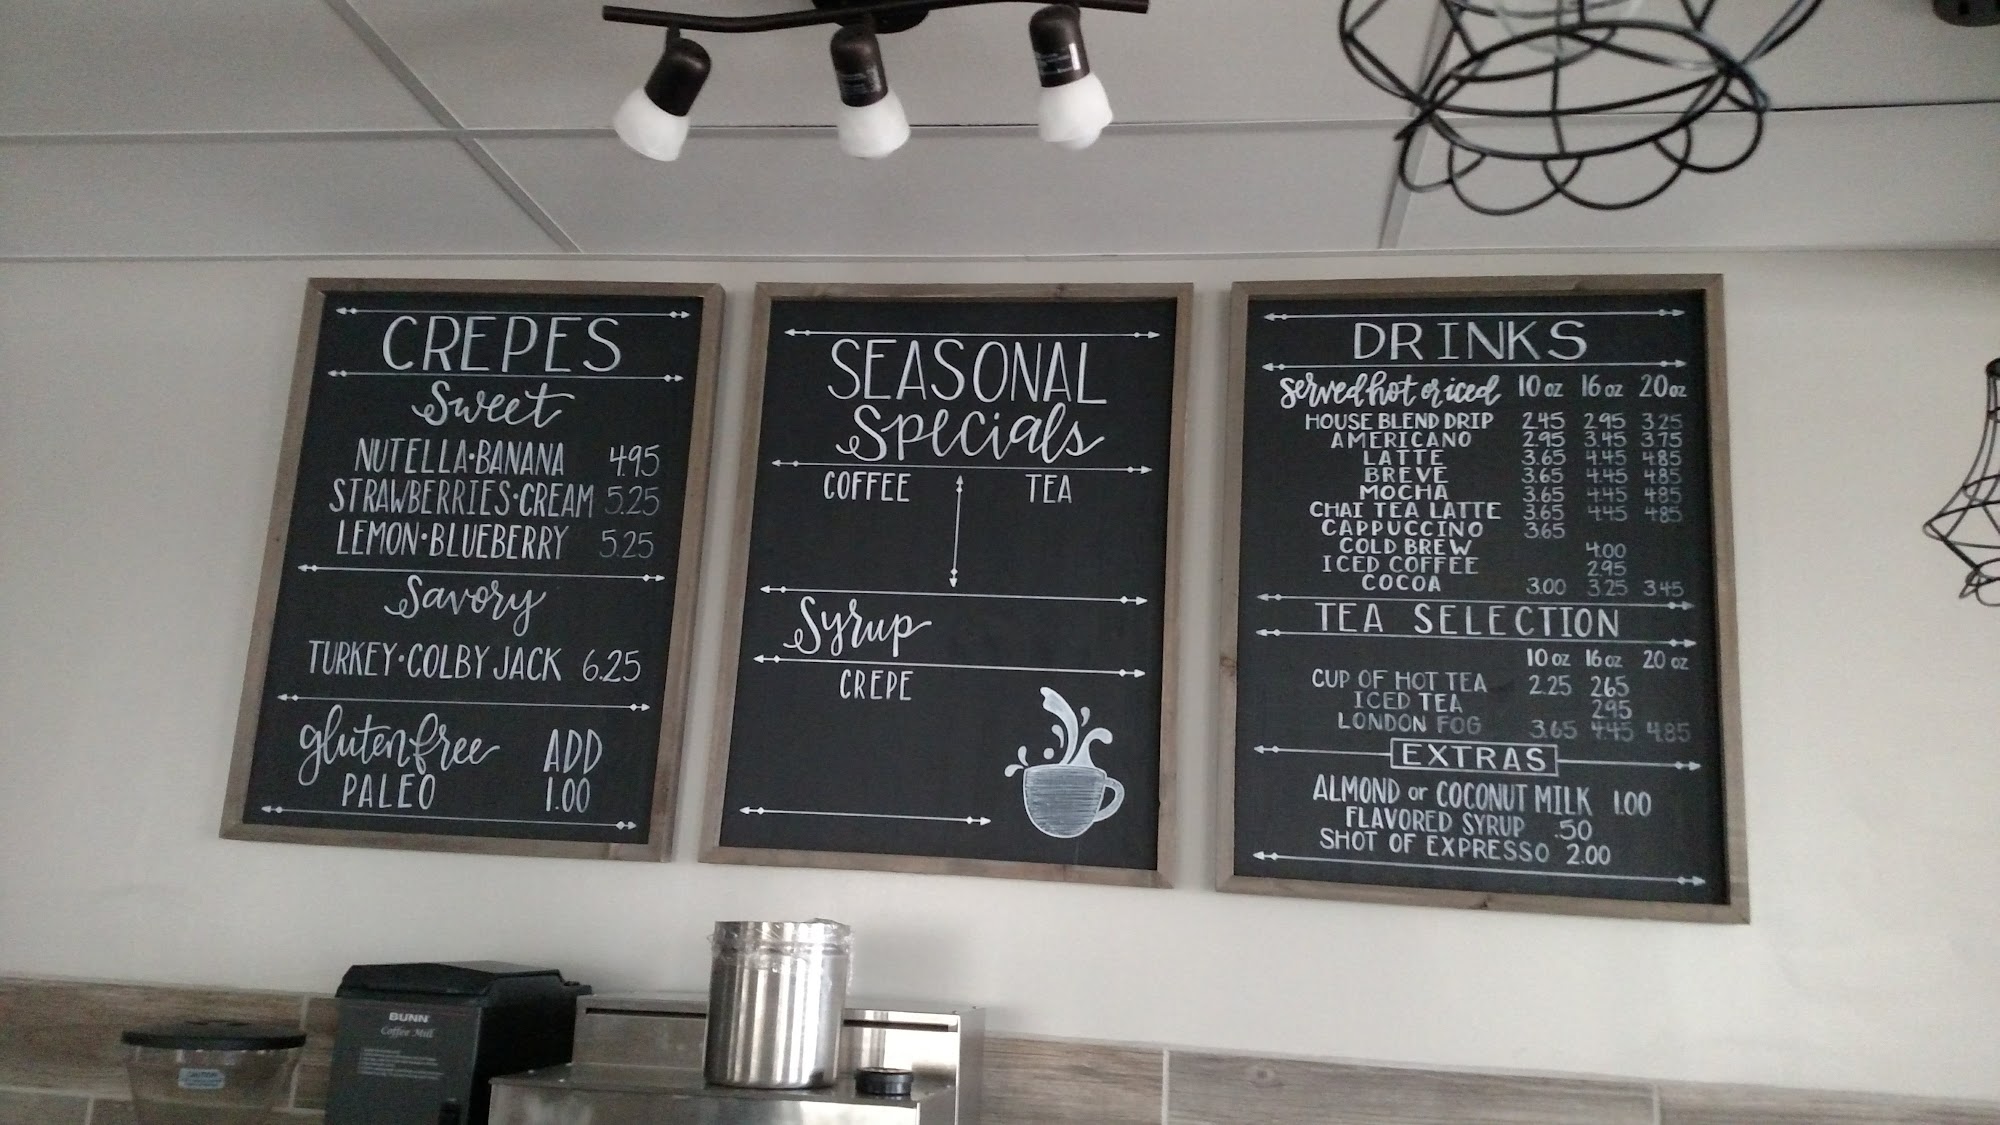 CREPES
Sweet
NUTELLA·BANANA 4.95
STRAWBERRIES·CREAM 5.25
LEMON·BLUEBERRY 5.25
Savory
TURKEY·COLBY JACK 6.25
gluten free ADD
PALEO 1.00
SEASONAL
Specials
COFFEE TEA
Syrup
CREPE
DRINKS
Served hot or iced 10 oz 16 oz 20 oz
HOUSE BLEND DRIP 2.45 2.95 3.25
AMERICANO 2.95 3.45 3.75
LATTE 3.65 4.45 4.85
BREVE 3.65 4.45 4.85
MOCHA 3.65 4.45 4.85
CHAI TEA LATTE 3.65 4.45 4.85
CAPPUCCINO 3.65
COLD BREW 4.00
ICED COFFEE 2.95
COCOA 3.00 3.25 3.45
TEA SELECTION
10 oz 16 oz 20 oz
CUP OF HOT TEA 2.25 2.65
ICED TEA 2.95
LONDON FOG 3.65 4.45 4.85
EXTRAS
ALMOND or COCONUT MILK 1.00
FLAVORED SYRUP .50
SHOT OF EXPRESSO 2.00
BUNN
Coffee Mill
CAUTION